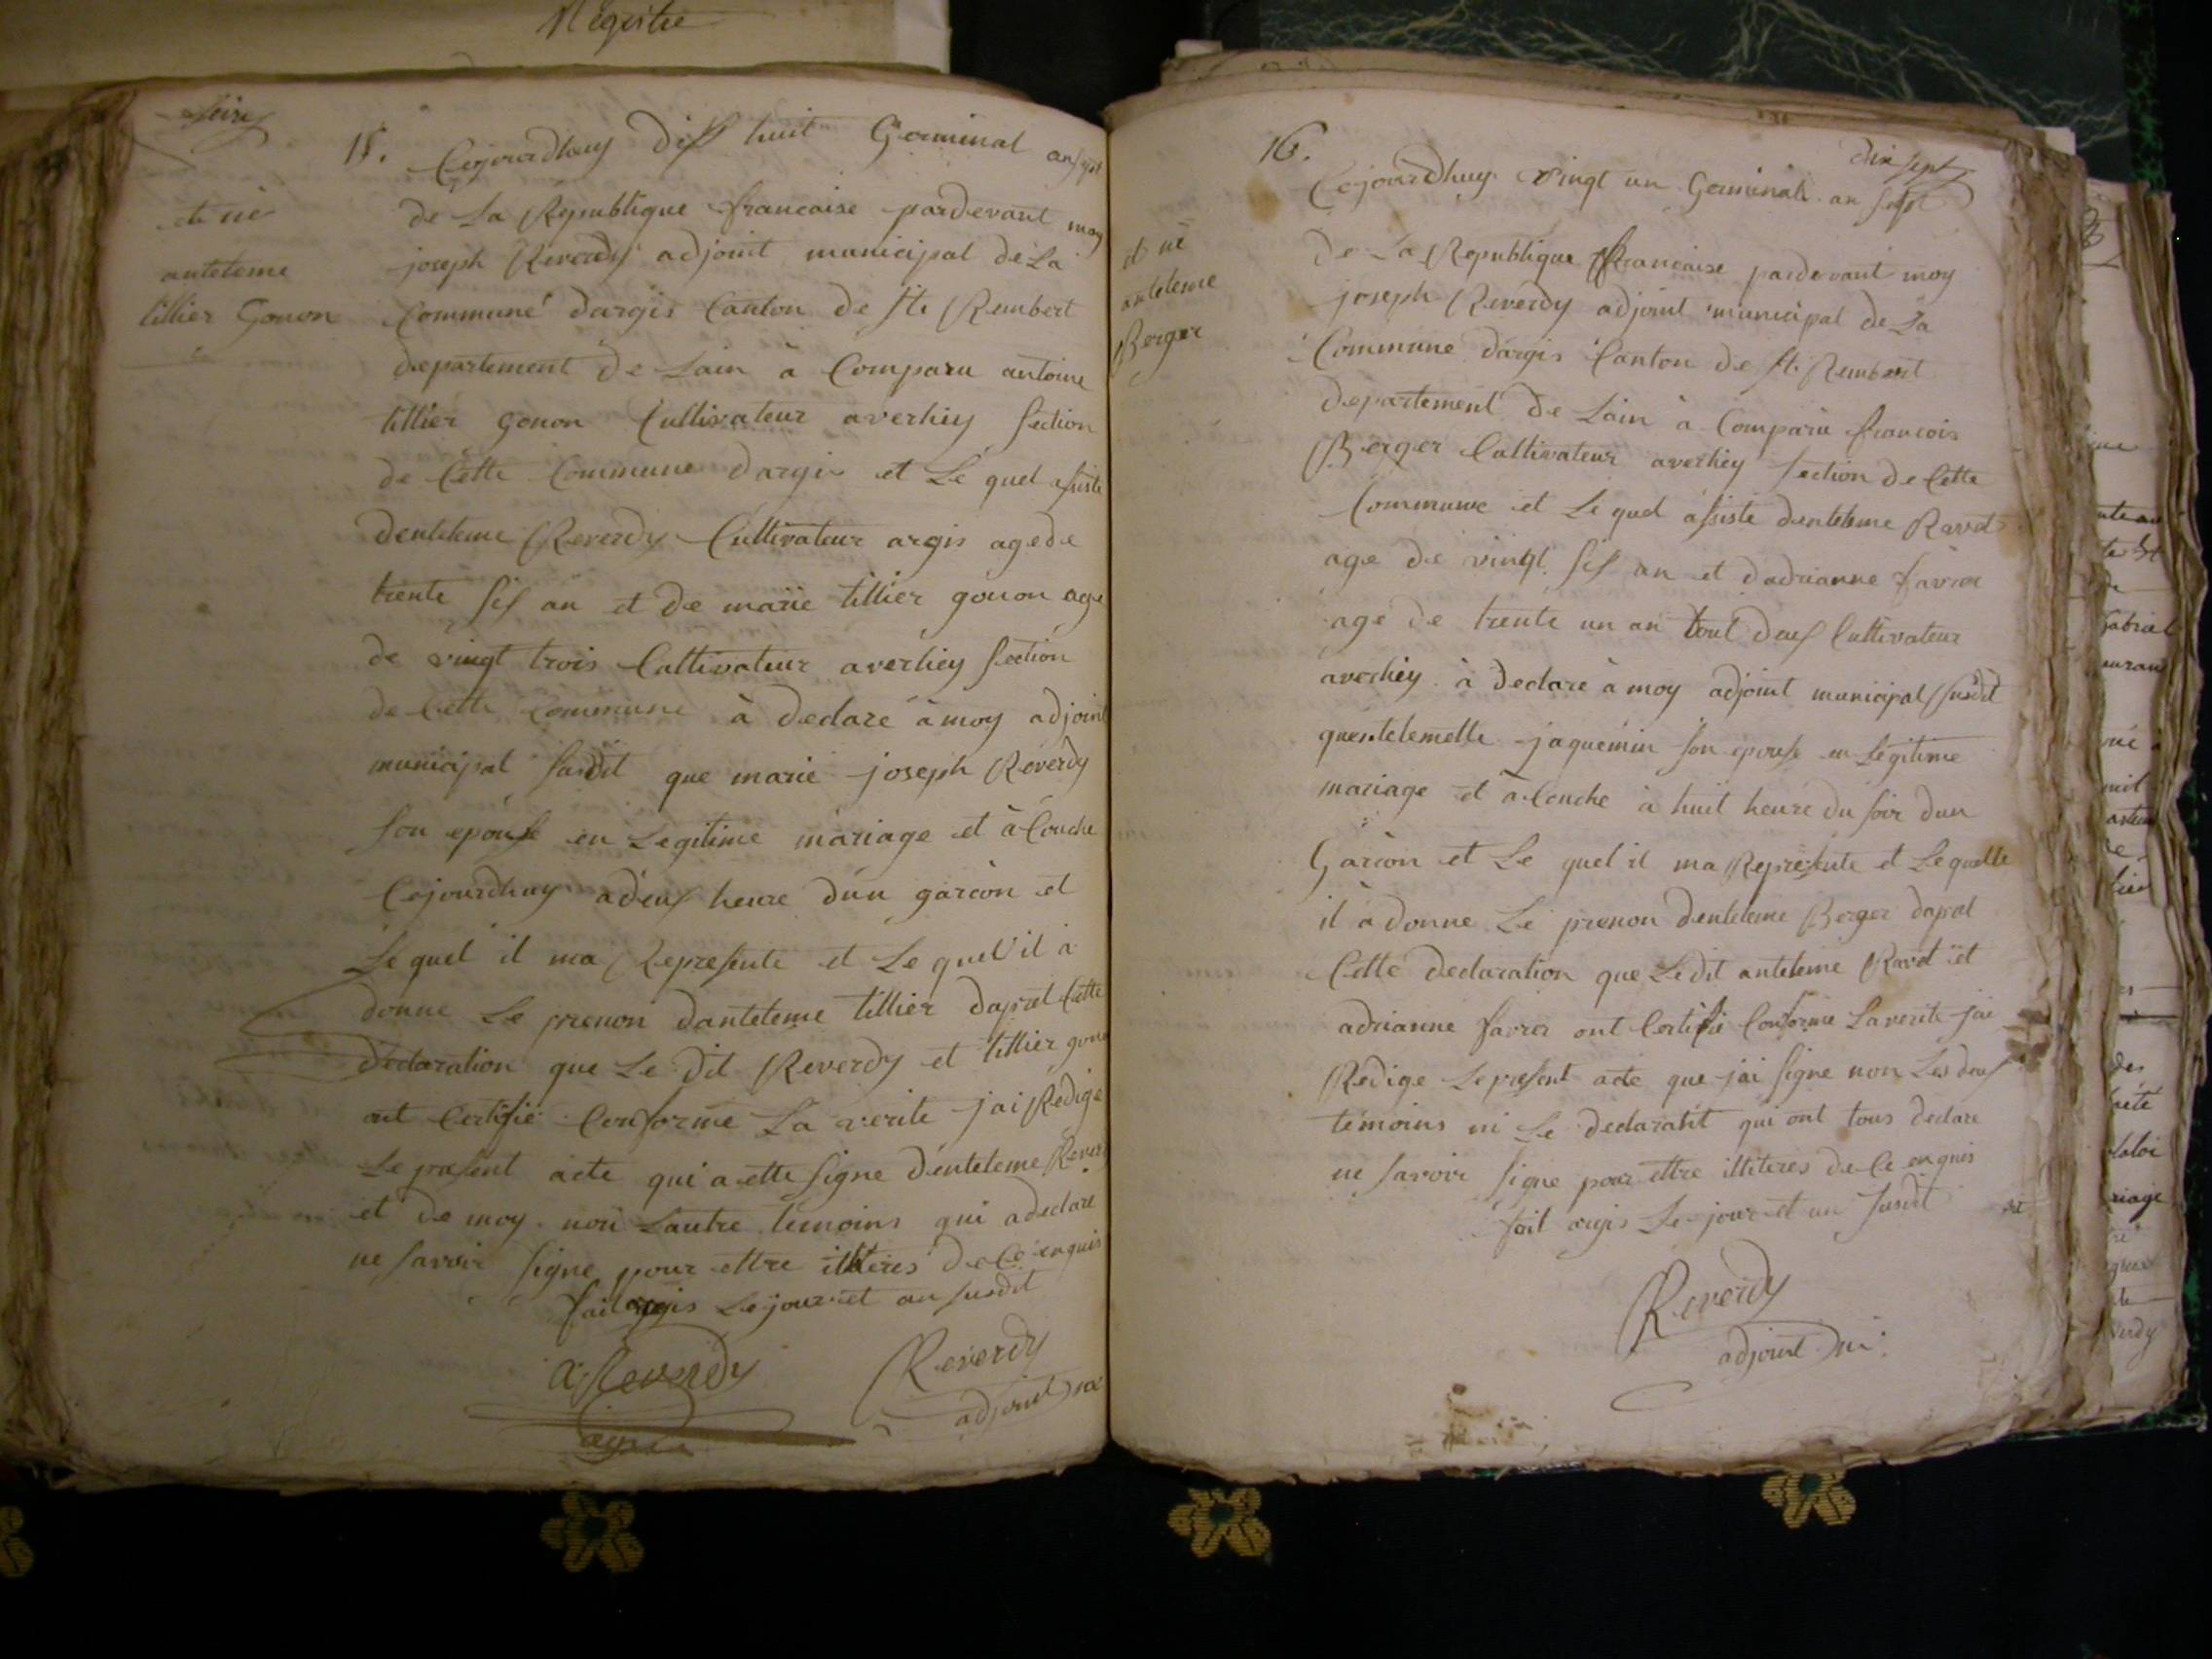 Registre
seize
15.
et né
anteleme
tillier Gonon
Cejourdhuy diss huit Germinal an sept
de La Republique francaise pardevant moy
joseph Reverdy adjoint municipal de La
Commune dargis Canton de St. Rembert
departement de Lain à Comparu antoine
tillier gonon Cultivateur averhiey section
de Cette Commune dargis et Le quel assiste
denteleme Reverdy Cultivateur argis age de
trente sis an et de marie tillier gonon age
de vingt trois Cultivateur averhiey section
de Cette Commune à declare à moy adjoint
municipal susdit que marie joseph Reverdy
son epouse en Legitime mariage et à Couche
Cejourdhuy adeus heure dun garcon et
Le quel il ma Represente et Le quel il à
donne Le prenon danteleme tillier dapret Cette
declaration que Le dit Reverdy et tillier gono
ont Certifie Conforme La verite jai Redige
Le present acte qui a ette signe denteleme Reverdy
et de moy non Lautre temoins qui adeclare
ne savoir signe pour ettre illiteres de Ce enquis
fait argis Le jour et an susdit
A Reverdy
Reverdy
adjoint
16.
dix sept
et né
anteleme
Berger
Cejourdhuy vingt un Germinal an sept
de La Republique francaise pardevant moy
joseph Reverdy adjoint municipal de La
Commune dargis Canton de St. Rembert
departement de Lain à Comparu francois
Berger Cultivateur averhiey section de Cette
Commune et Le quel assiste denteleme Ravet
age de vingt sis an et dadrianne favrer
age de trente un an tout deus Cultivateur
averhiey à declare à moy adjoint municipal susdit
quentelemette jaquemin son epouse en Legitime
mariage et à Couche à huit heure du soir dun
Garcon et Le quel il ma Represente et Le quelle
il à donne Le prenon denteleme Berger dapret
Cette declaration que Ledit anteleme Ravet et
adrianne favrer ont Certifie Conforme La verite jai
Redige Le present acte que jai signe non Les deus
temoins ni Le declarant qui ont tous declare
ne savoir signe pour ettre illiteres de Ce enquis
fait argis Le jour et an susdit
Reverdy
adjoint m.